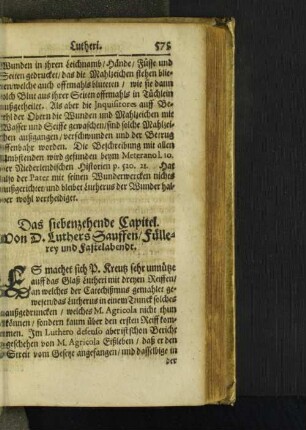 Lutheri. 575
Wunden in ihren Leichnamb/Hände/Füsse und
Seiten gedrucket/das die Mahlzeichen stehen blie-
ben/welche auch offtermahls bluteten/ wie sie dann
solch Blut aus ihrer Seiten offtmahls in Tüchlein
außgetheilet. Als aber die Inquisitores auff Be-
fehl der Obern die Wunden und Mahlzeichen mit
Wasser und Seiffe gewaschen/sind solche Mahlzei-
chen außgangen/verschwunden und der Betrug
offenbahr worden. Die Beschreibung mit allen
Umbständen wird gefunden beym Meterano l. 10.
der Niederländischen Historien p. 520. 21. Hat
also der Pater mit seinen Wunderwercken nichts
außgerichtet und bleibet Lutherus der Wunder hal-
ber wohl verthediget.
Das siebenzehende Capitel.
Von D. Luthers Sauffen/Fülle-
rey und Fastelabendt.
ES machet sich P. Kreutz sehr unnütze
auff das Glaß Lutheri mit dreyen Reiffen/
an welches der Catechismus gemahlet ge-
wesen/das Lutherus in einem Trunck solches
außgedruncken/ welches M. Agricola nicht thun
können/ sondern kaum über den ersten Reiff kom-
men. Im Luthero defenso aber ist schon Bericht
geschehen von M. Agricola Eißleben/ daß er den
Streit vom Gesetze angefangen/und dasselbige in
der